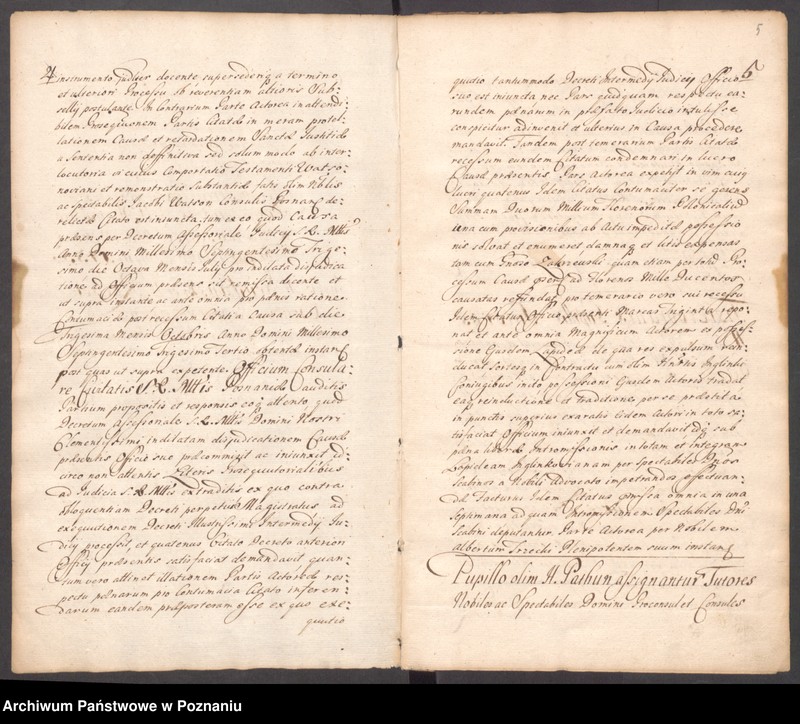 4
instrumento Judicy docente supersederi a termino
et ulteriori Processu ob reverentiam altioris Sub-
sellij postulante. In Contrarium Parte Actorea inattendi-
bilem Prosequutionem Partis Citatæ in meram protel-
lationem Causæ et retardationem Sanctæ Justitiæ
a Sententia non deffinitiva sed solum modo ab inter-
locutoria vi cuius Comportatio Testamenti Watso-
noviani et remonstratio Substantiæ olim Nobilis
ac Spectabilis Jacobi Watson Consulis Posnan: de-
relictæ Citato est iniuncta, tum ex eo quod Causa
præsens per Decretum Assessoriale Judicy S. R. Mttis
Anno Domini Millesimo Septingentesimo Trige-
simo die Octava Mensis July pro indilata dijudica-
tione ad Officium præsens sit remissa dicente et
ut supra instante ac ante omnia pro pænis ratione
Contumaciæ post recessum Citati a Causa sub die
Trigesima Mensis Octobris Anno Domini Millesimo
Septingentesimo Trigesimo Tertio obtentæ instant
post quas ut supra expetente. Officium Consula-
re Civitatis S. R. Mttis Posnaniæ auditis
Partium propositis et responsis eoq attento quod
Decretum Assessoriale S. R. Mttis Domini Nostri
Clementissimi indilatam disjudicationem Causæ
præsentis Officio suo præcommisit ac iniunxit id-
circo non attentis Literis Inseqvutorialibus
ad Judicia S. R. Mttis extraditis ex quo contra
Eloquentiam Decreti perpetui Magistratus ad
exequutionem Decreti Illustrissimi Intermedy Ju-
dicy processit, et quatenus Citatus Decreto anteriori
Officy præsentis satisfaciat demandavit quan-
tum vero attinet illationem Partis Actoreæ res-
pectu pænarum pro Contumacia Citato inferen-
darum eandem præposteram esse ex quo exe-
quutio
5
5
quutio tantummodo Decreti Intermedy Judicy Officio
suo est iniuncta nec Pars quidquam respectu ea-
rundem pænarum in præfato Judicio intulisse
conspicitur adinvenit et ulterius in Causa procedere
mandavit. Tandem post temerarium Partis Citatæ
recessum eundem Citatum condemnari in lucro
Causæ præsentis Pars Actorea expetijt in vim cuius
lucri quatenus Idem Citatus Contumaciter se gerens
Summam Duorum Millium Florenorum Polonicalium
una cum provisionibus ab Actu impeditæ possessio-
nis solvat et enumeret damnaq et litis expensas
tam cum Gnoso Zakrzewski quam etiam per totum Pro-
cessum Causæ præsentis ad Florenos Mille Ducentos
causatas refundat pro temerario vero sui recessu
Idem Citatus Officio præsenti Marcas Triginta repo-
nat et ante omnia Magnificum Actorem ex posses-
sione Ejusdem Lapideæ de qua res expulsum rein-
ducat Sortesq in Contradictu cum olim Hnrtis Inglinki
Conjugibus inito possessioni Ejusdem Actoris tradat
eaq reinductione et traditione per se præstita
in punctis superius exaratis eidem Actori in toto sa-
tisfaciat Officium iniunxit et demandavit idq sub
pæna liberæ Intromissionis in totam et integram
Lapideam Inglinkovianam per Spectabiles Dnos
Scabinos a Nobili Advocato impetrandos effectuan-
dæ Facturus Idem Citatus præmissa omnia in una
Septimana ad quam Intromissionem Spectabiles Dni
Scabini deputantur. Parte Actorea per Nobilem
Albertum Trzecki Plenipotentem suum instan.
Pupillo olim H. Pashun assignantur Tutores
Nobiles ac Spectabiles Domini Proconsul et Consules
Archiwum Państwowe w Poznaniu